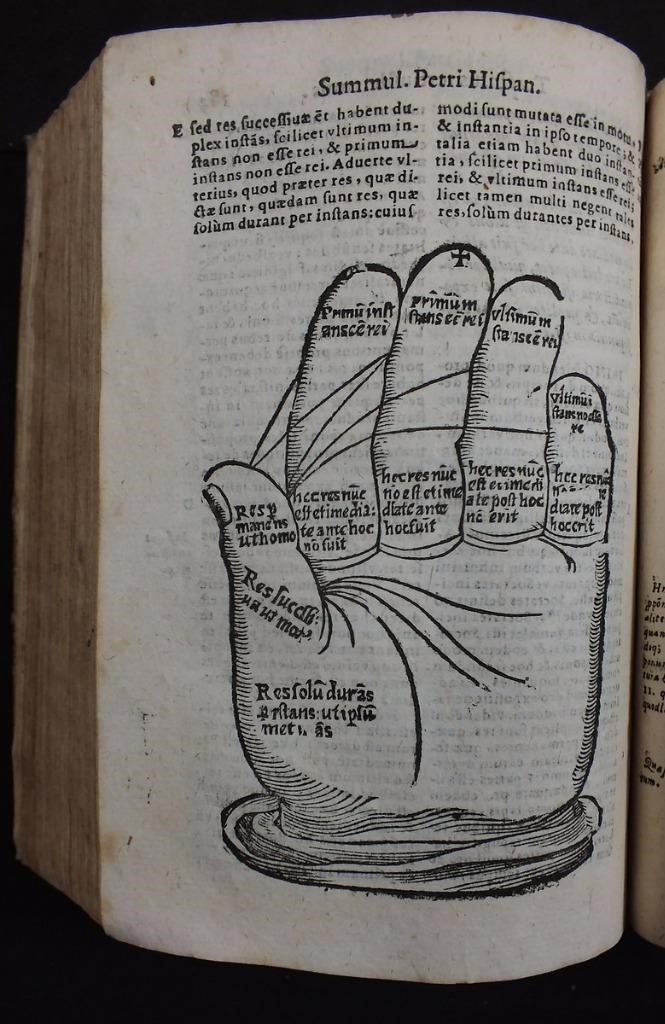 Summul. Petri Hiſpan.
E ſed res ſucceſſiuæ ēt habent du-
plex inſtãs, ſcilicet vltimum in-
ſtans non eſſe rei, & primum
inſtans non eſſe rei. Aduerte vl-
terius, quod præter res, quæ di-
ctæ ſunt, quædam ſunt res, quæ
ſolùm durant per inſtans: cuiuſ
modi ſunt mutata eſſe in motu,
& inſtantia in ipſo tempore; &
talia etiam habent duo inſtan-
tia, ſcilicet primum inſtans eſſe
rei, & vltimum inſtans eſſe rei;
licet tamen multi negent tales
res, ſolùm durantes per inſtans,
Primũ inſt
ans eē rei
primũm
ſtans eē rei
vltimũm
ſtans eē rei
vltimũi
ſtans nō eſſe
re
Res p
manens
ut homo
hec res nũc
eſt et imedia:
te ante hoc
nõ fuit
hec res nũc
nõ eſt et ime
diate ante
hoc fuit
hec res nũc
eſt et imedi
ate poſt hoc
nõ erit
hec res nũ
diate poſt
hoc erit
Res ſucceſſi:
ua ut mot
Res ſolũ durãs
ꝑ ſtans: ut ipſũ
met ãs